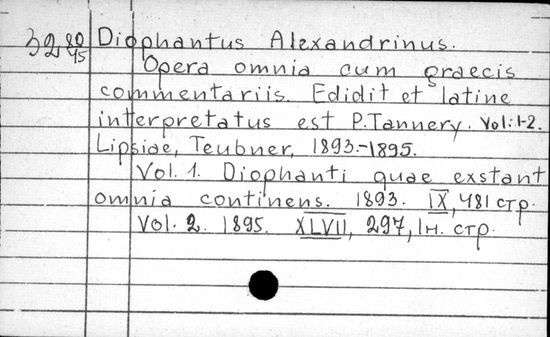 3280/45 Diophantus Alexandrinus.
Opera omnia cum graecis
commentariis. Edidit et latine
interpretatus est P. Tannery. Vol: 1-2.
Lipsiae, Teubner, 1893.-1895.
Vol. 1. Diophanti quae exstant
omnia continens. 1893. IX, 481 стр.
Vol. 2. 1895. XLVII, 297, 1н. стр.